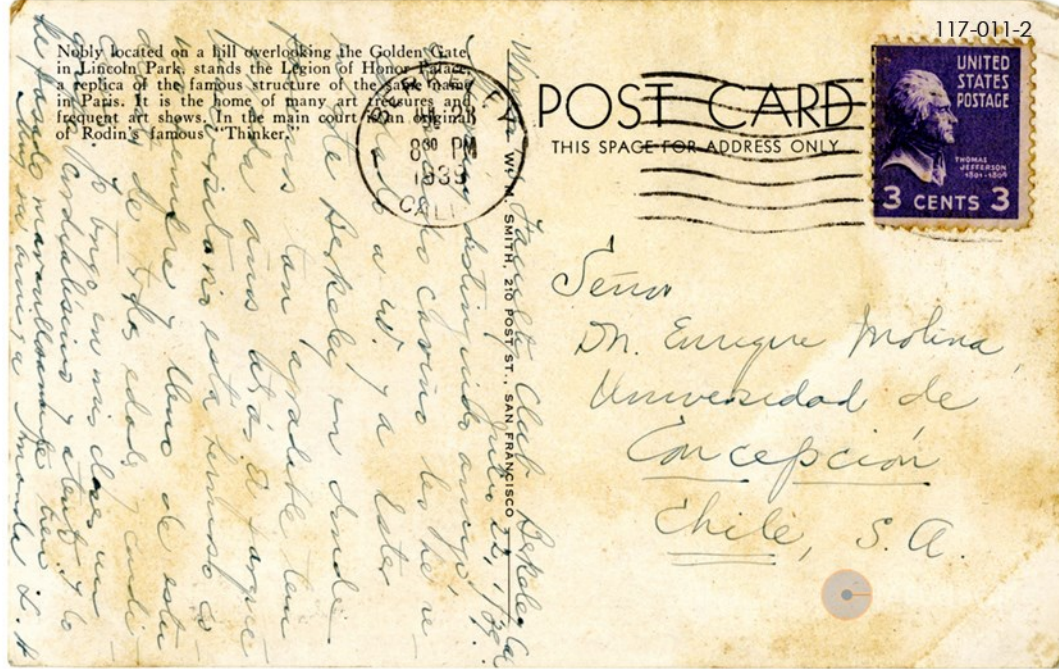 117-011-2
Nobly located on a hill overlooking the Golden Gate,
in Lincoln Park, stands the Legion of Honor Palace,
a replica of the famous structure of the same name
in Paris. It is the home of many art treasures and
frequent art shows. In the main court is an original
of Rodin's famous "Thinker."
POST CARD
THIS SPACE FOR ADDRESS ONLY
UNITED
STATES
POSTAGE
THOMAS
JEFFERSON
1801-1809
3 CENTS 3
8 30 PM
1939
CALIF
WM. N. SMITH, 210 POST ST., SAN FRANCISCO
Señor
Dn. Enrique Molina
Universidad de
Concepción
Chile, S. A.
Women's Faculty Club Berkeley Ca
Julio 22, 1939
distinguido amigo:
cariño los he re
a ud. y a Ester
este Berkeley en donde
tan agradable tem
años atrás. El parque
universitario está hermoso
y lleno de estu
de todas edades
yo tengo en mis clases un
cordialísimo y atento y lo
he pasado maravillosamente bien.
su amiga Amanda L. H